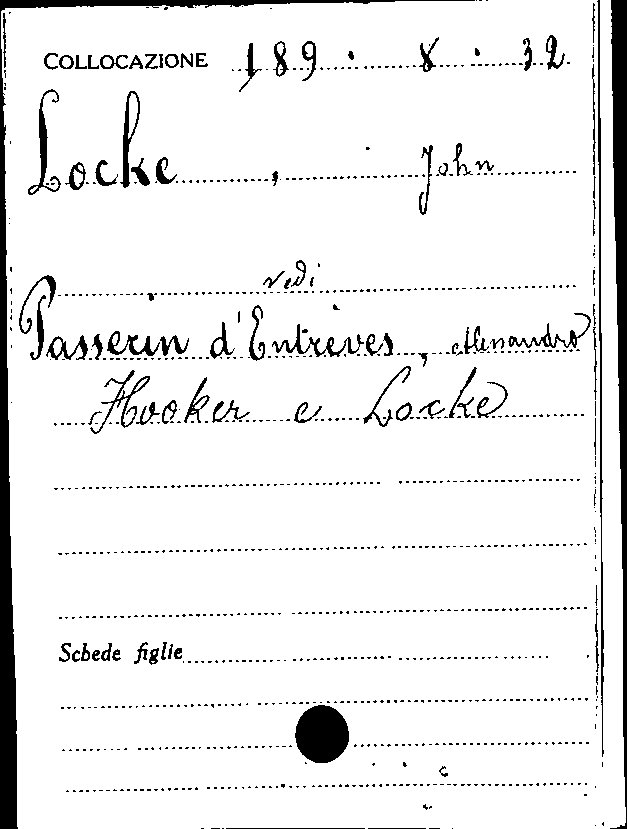 COLLOCAZIONE 189. 8. 32
Locke, John
vedi
Passerin d'Entrèves, Alessandro
Hooker e Locke
Schede figlie